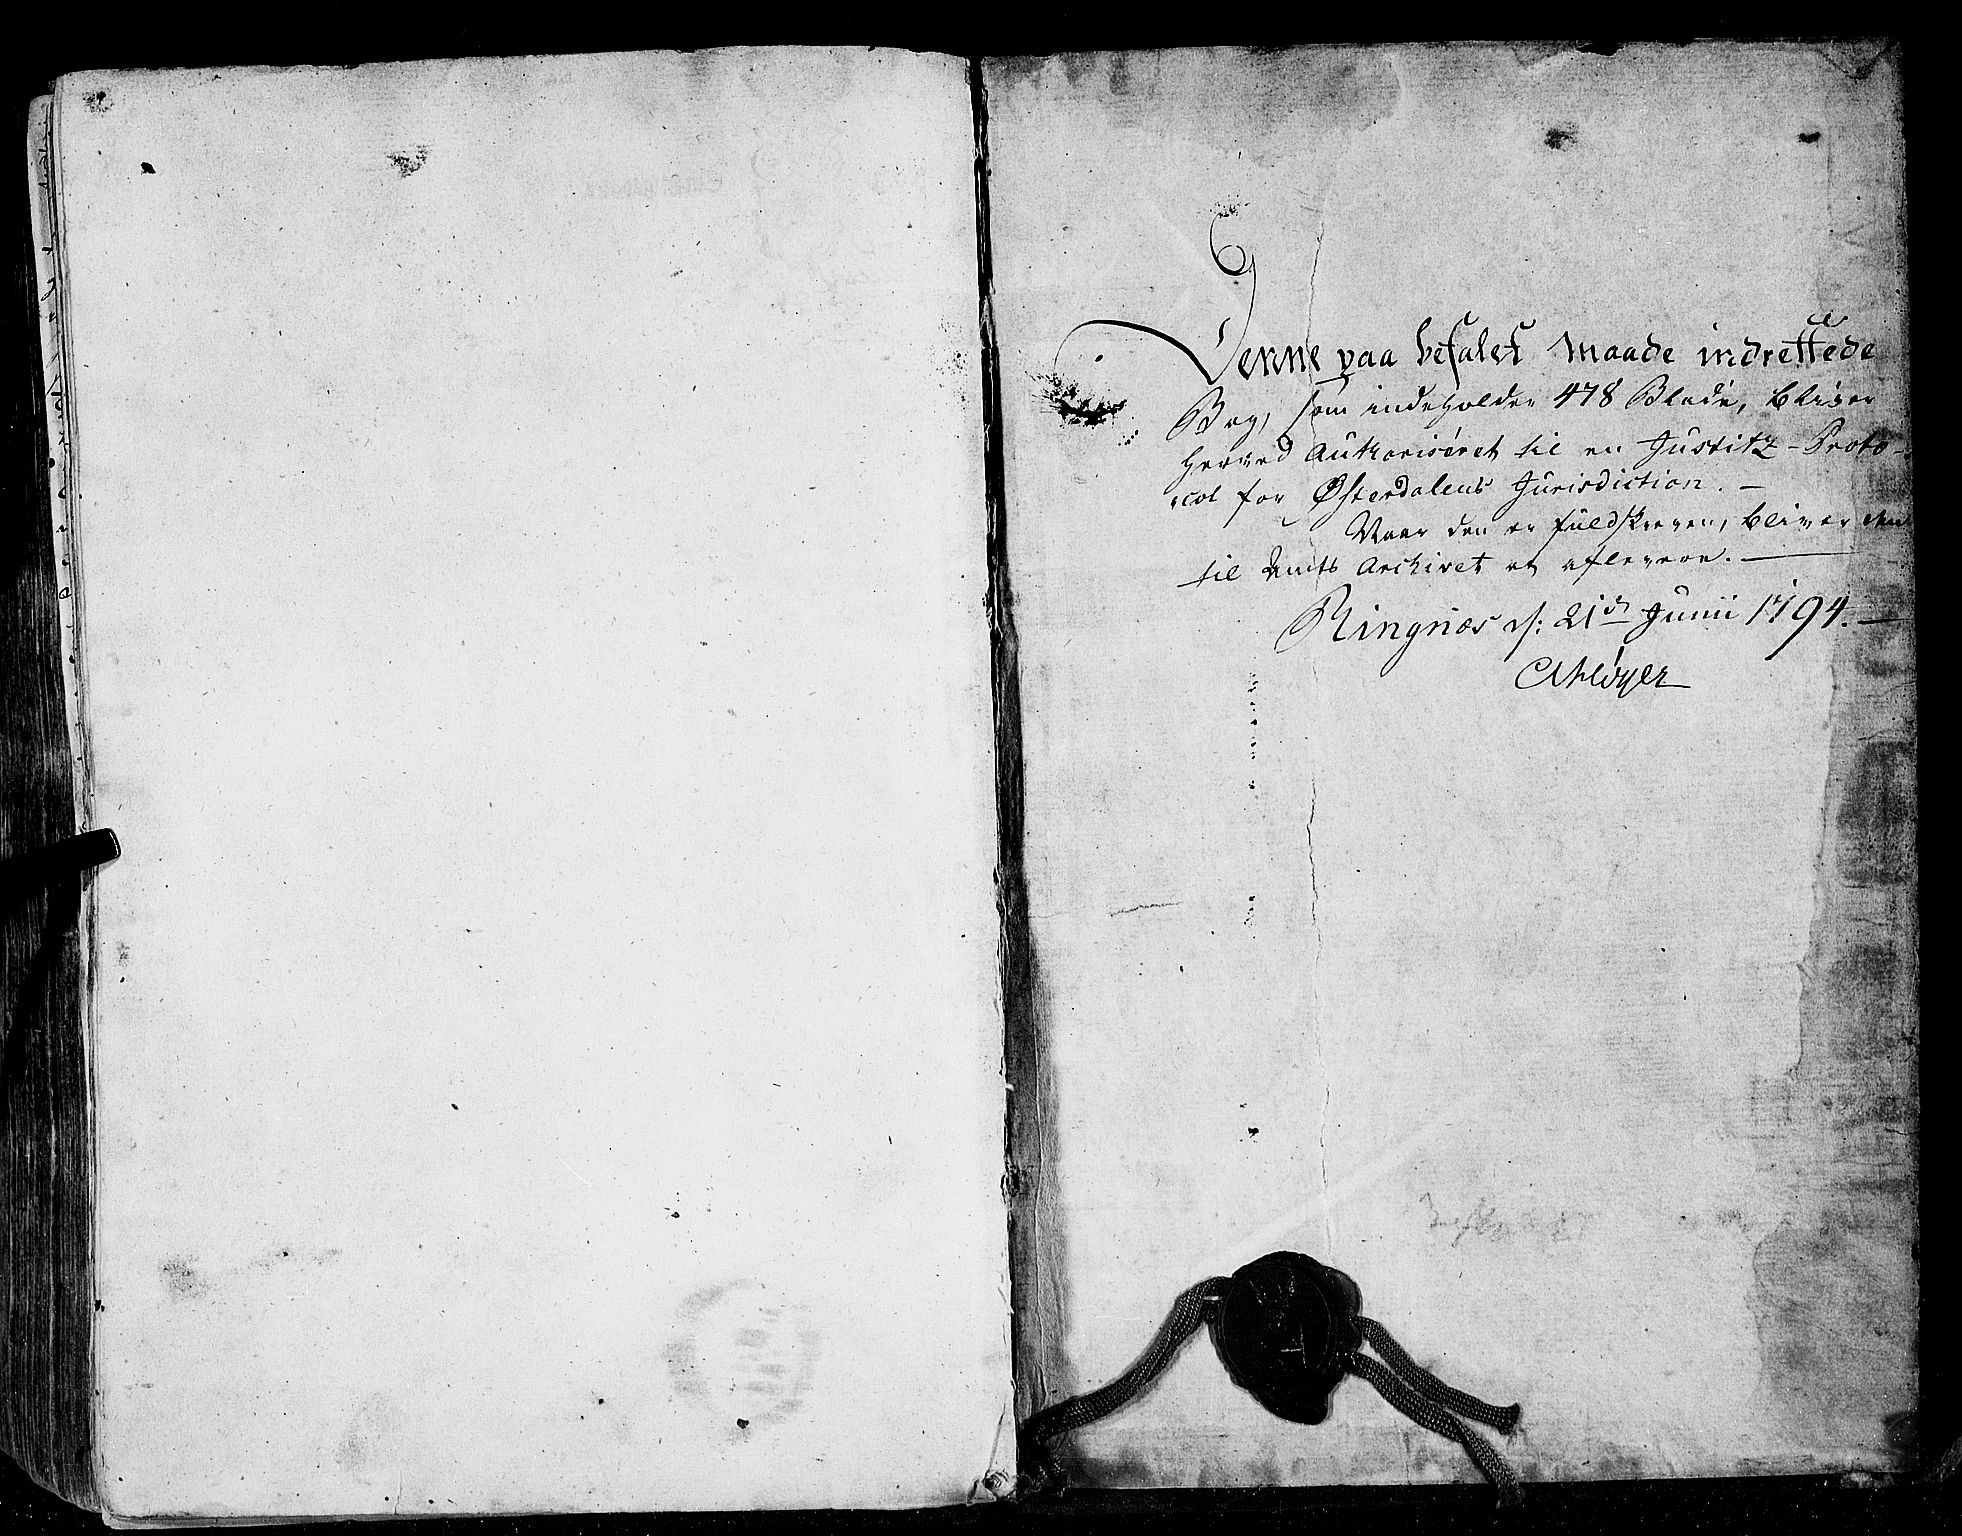 Denne paa befalet Maade indrettede
Bog, som indeholder 478 Blade, bliver
herved Authoriseret til en Justitz-Proto-
col for Østerdalens Jurisdiction. —
Naar den er fuldskreven, bliver den
til Amts Archivet at aflevere. —
Ringnæs d: 21de Junii 1794. —